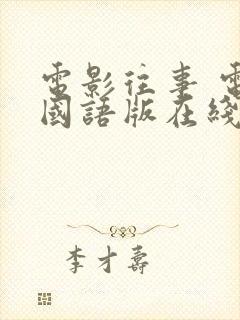 電影往事 電
國語版在綫
李才壽